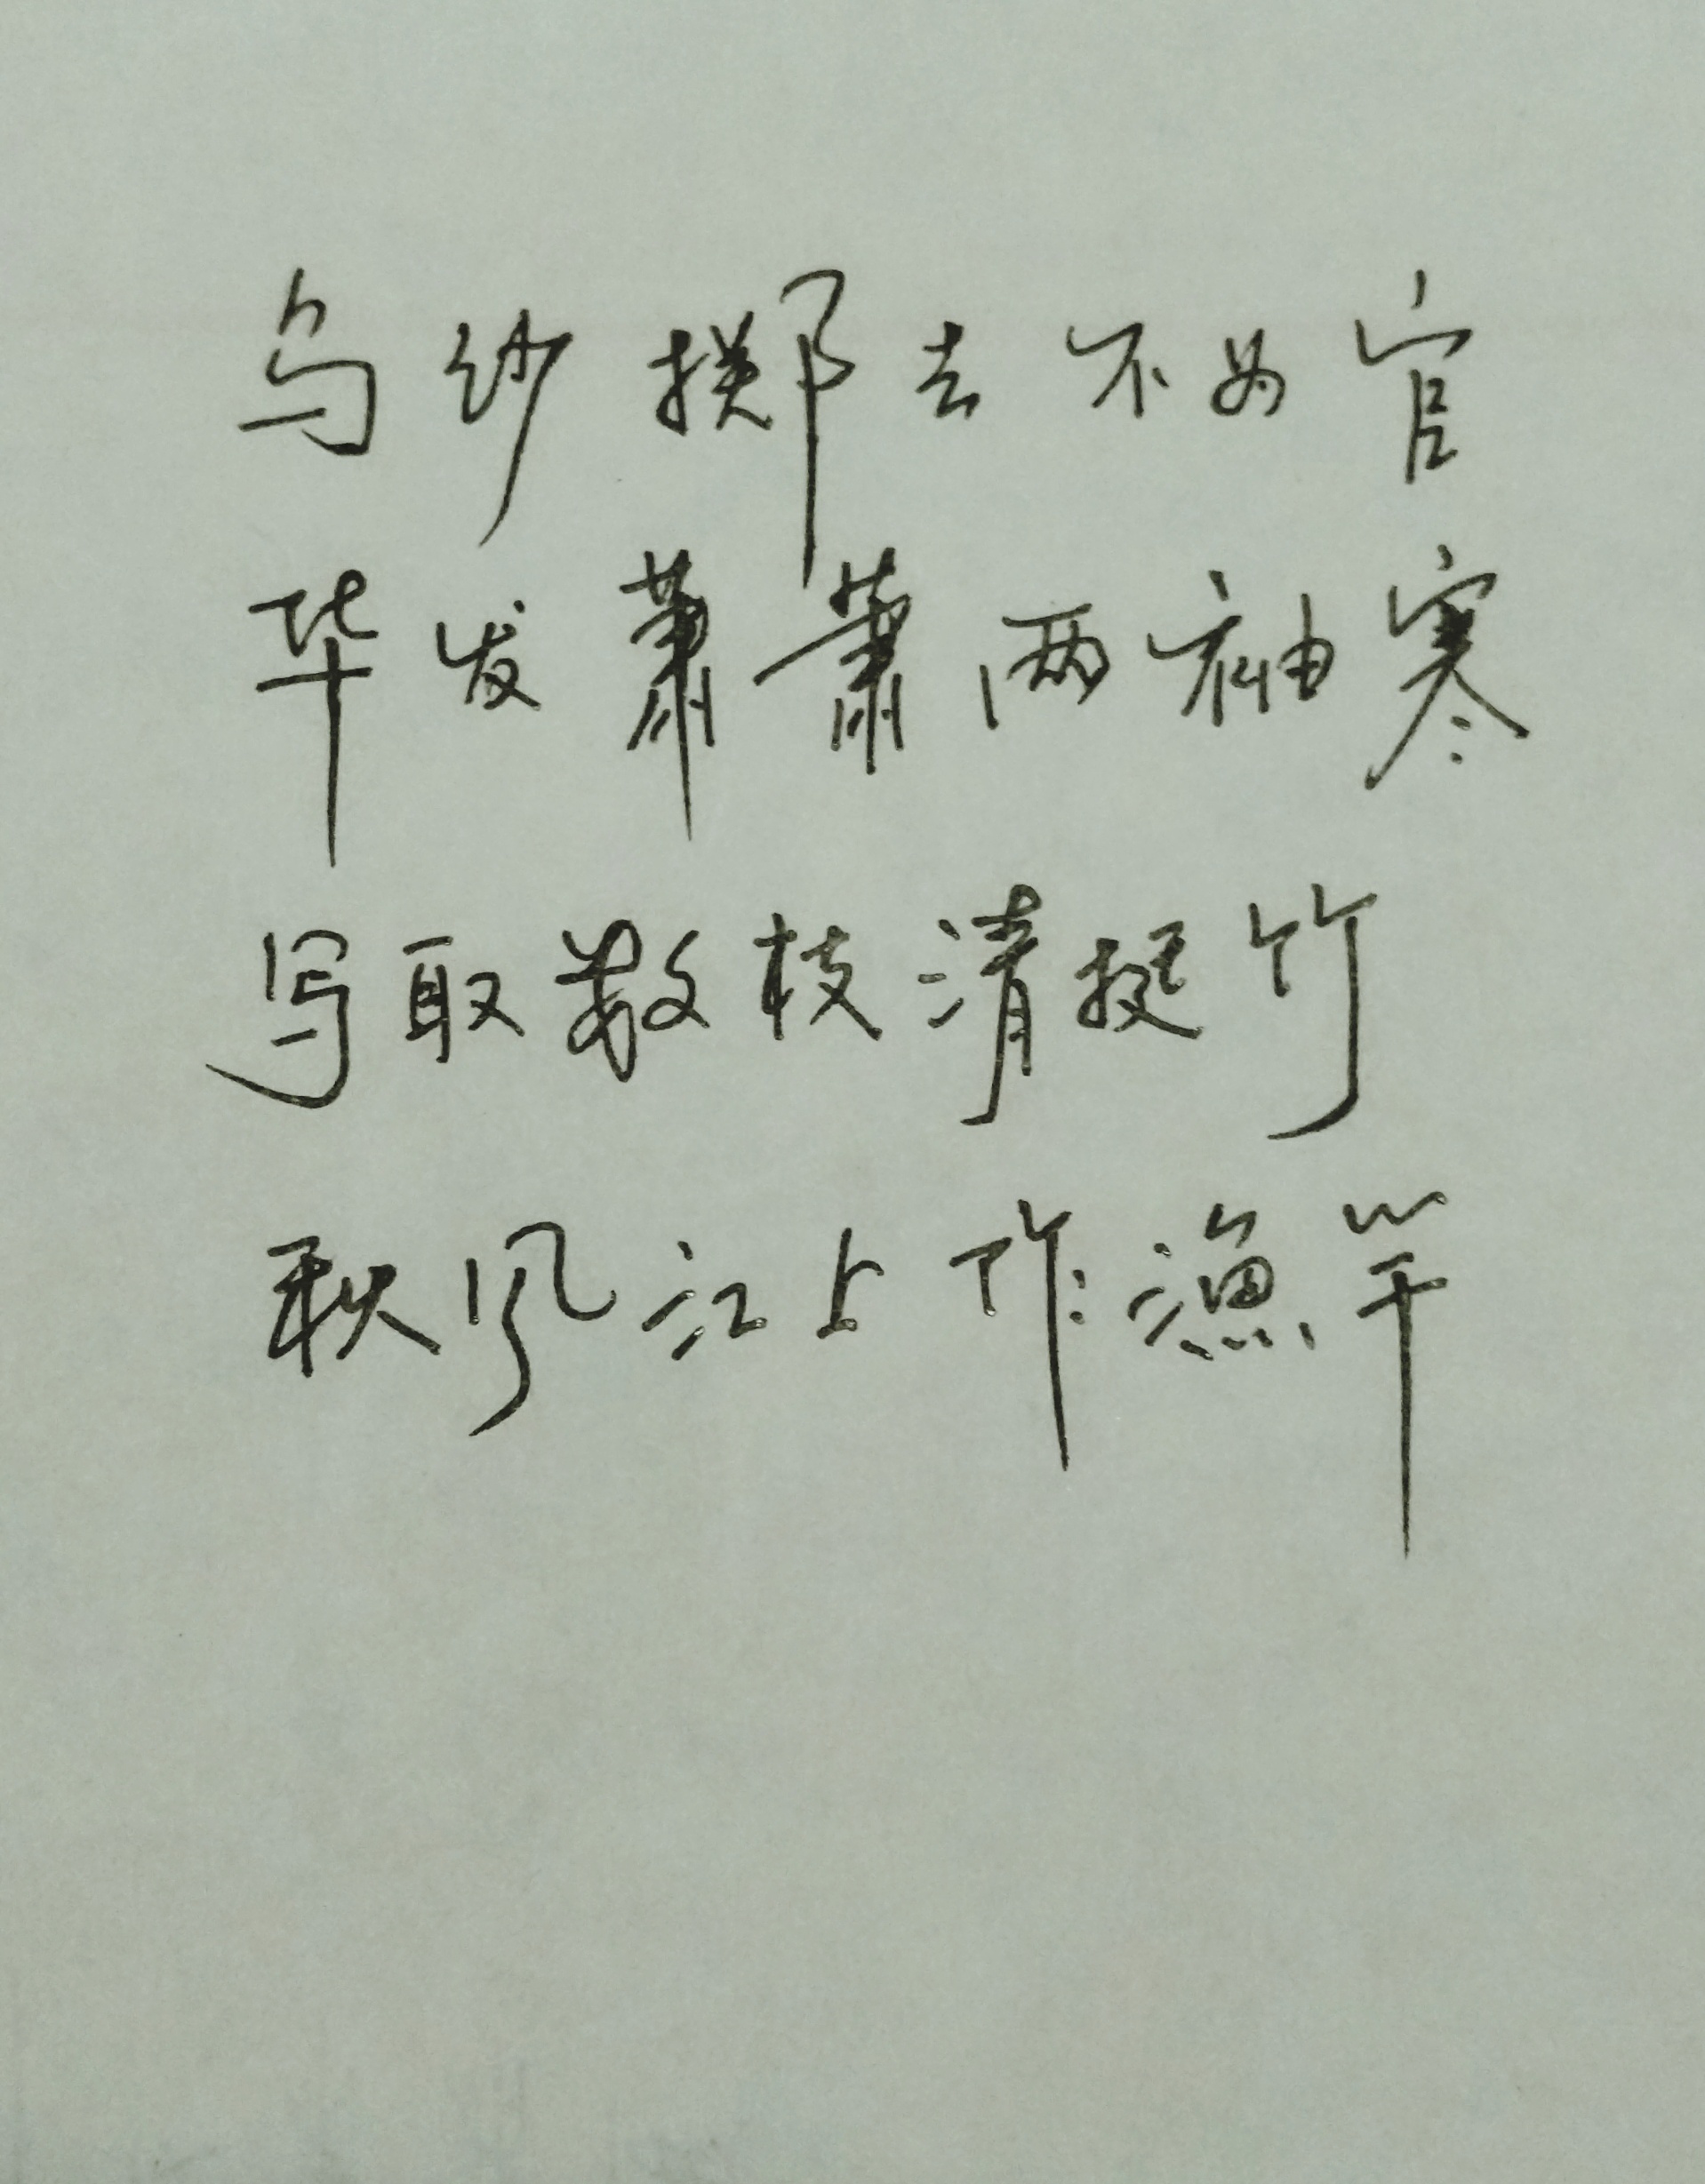 乌纱掷去不为官
华发萧萧两袖寒
写取数枝清挺竹
秋风江上作渔竿